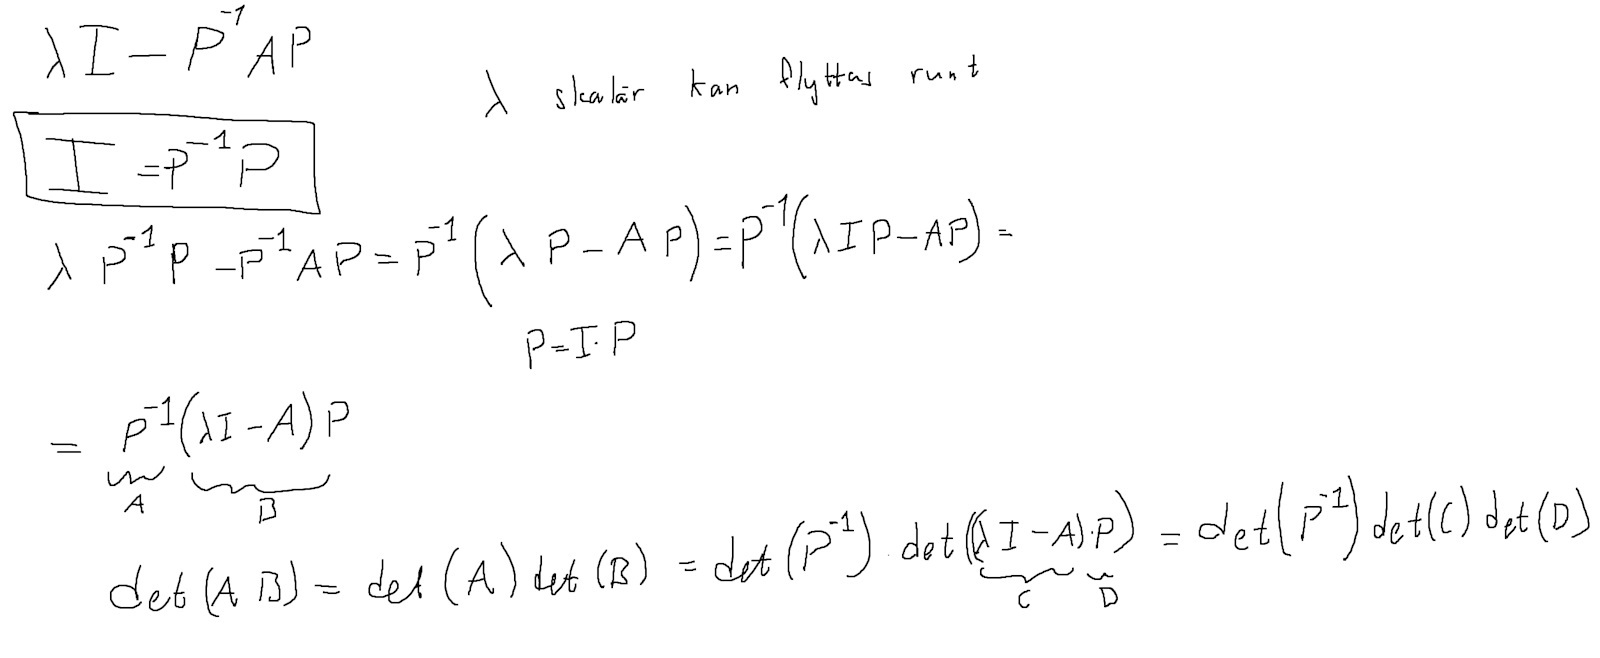 λI - P⁻¹AP
λ skalär kan flyttas runt
I = P⁻¹P
λ P⁻¹P - P⁻¹AP = P⁻¹(λ P - A P) = P⁻¹(λIP - AP) =
P = I·P
= P⁻¹(λI - A)P
A B
det(A B) = det(A) det(B) = det(P⁻¹) · det((λI - A)·P) = det(P⁻¹) det(C) det(D)
C D